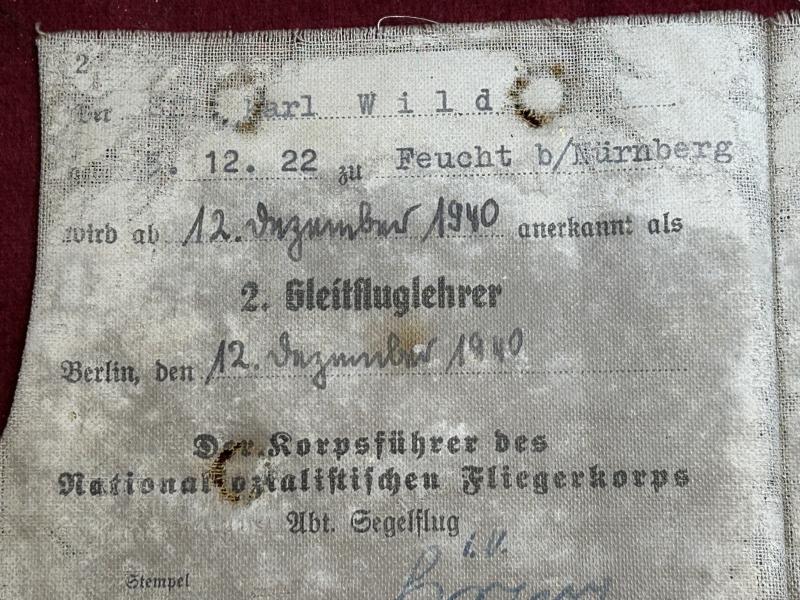 2
Der Karl Wild
12. 22 zu Feucht b/Nürnberg
wird ab 12. Dezember 1940 anerkannt als
2. Gleitfluglehrer
Berlin, den 12. Dezember 1940
Der Korpsführer des
Nationalsozialistischen Fliegerkorps
Abt. Segelflug
i.V.
Stempel